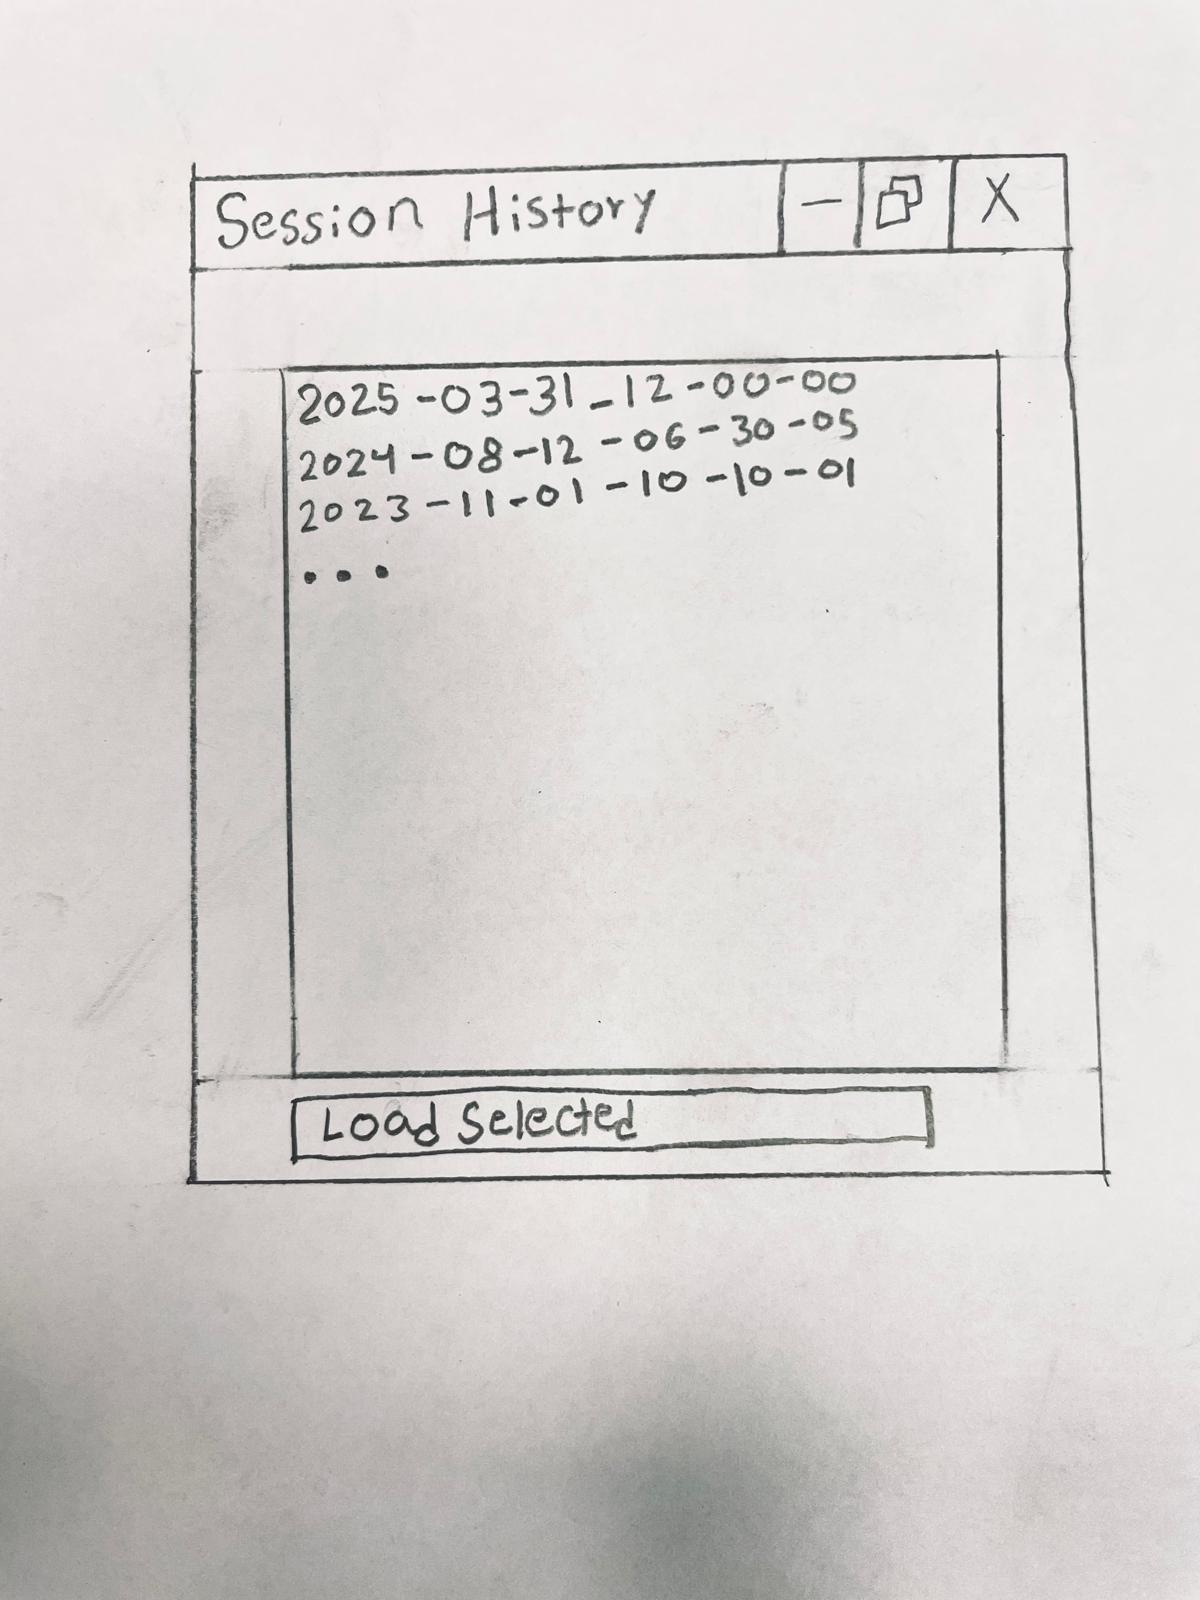 Session History - X
2025-03-31_12-00-00
2024-08-12-06-30-05
2023-11-01-10-10-01
...
Load Selected